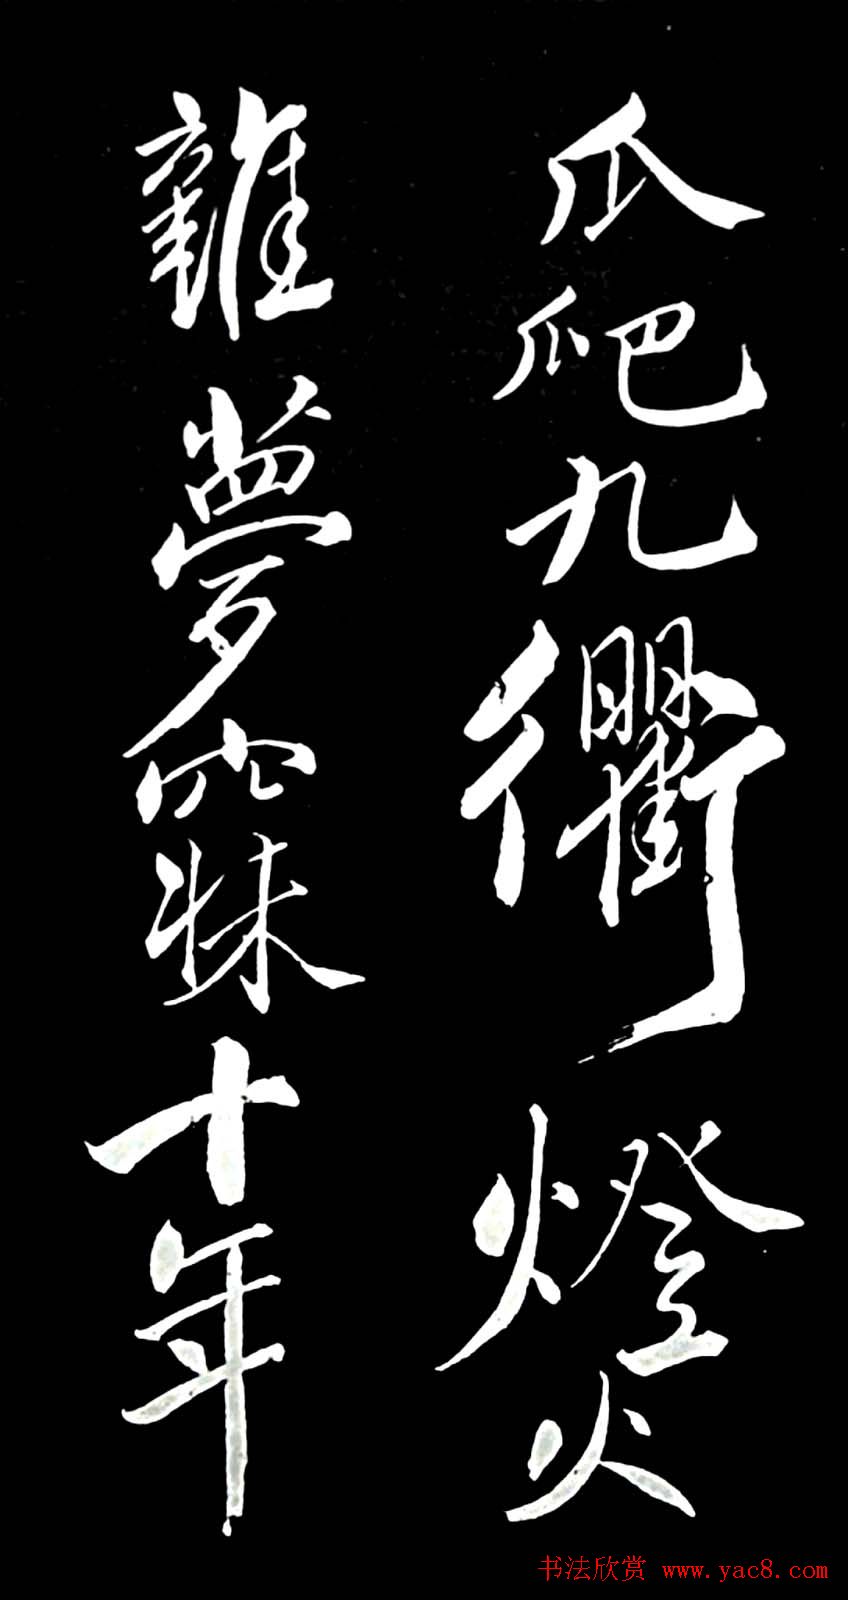 爪爬九衢燈火
雜夢寐十年
书法欣赏 www.yac8.com